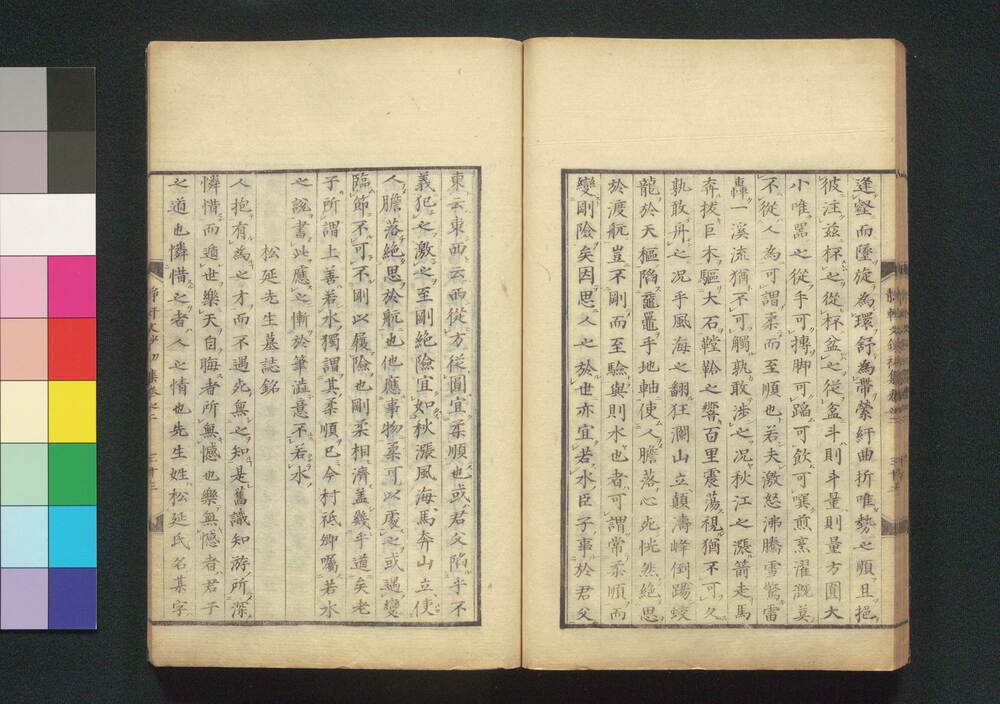 逢壑而墜旋為環舒為帶縈紆曲折唯勢之順且挹
彼注茲杯之從杯盆之從盆斗則斗量則量方圓大
小唯器之從手可摶脚可蹈可飲可噀煎烹濯溉莫
不從人為可謂柔而至順也若夫激怒沸騰雪驚雷
轟一溪流猶不可觸孰敢涉之况秋江之漲箭走馬
奔拔巨木驅大石鞺鞳之響百里震蕩視猶不可久
孰敢舟之况乎風海之翻狂瀾山立顛濤峰倒踢蛟
龍於天樞陷黿鼉乎地軸使人膽落心死恍然絕思
於渡航豈不剛而至驗與則水也者可謂常柔順而
變剛險矣因思人之於世亦宜若水臣子事於君父
東云東西云西從方從圓宜柔順也或君父陷乎不
義犯之激之至剛絕險宜如秋漲風海馬奔山立使
人膽落絕思於航也他應事物柔可以處之或遇變
臨節不可不剛以履險也剛柔相濟蓋幾乎道矣老
子所謂上善若水獨謂其柔順已今村祗卿囑若水
之說書此應之慚於筆溢意不若水
松延先生墓誌銘
人抱有為之才而不遇死無之知是舊識知游所深
憐惜而遁世樂天自晦者所無憾也樂無憾者君子
之道也憐惜之者人之情也先生姓松延氏名某字